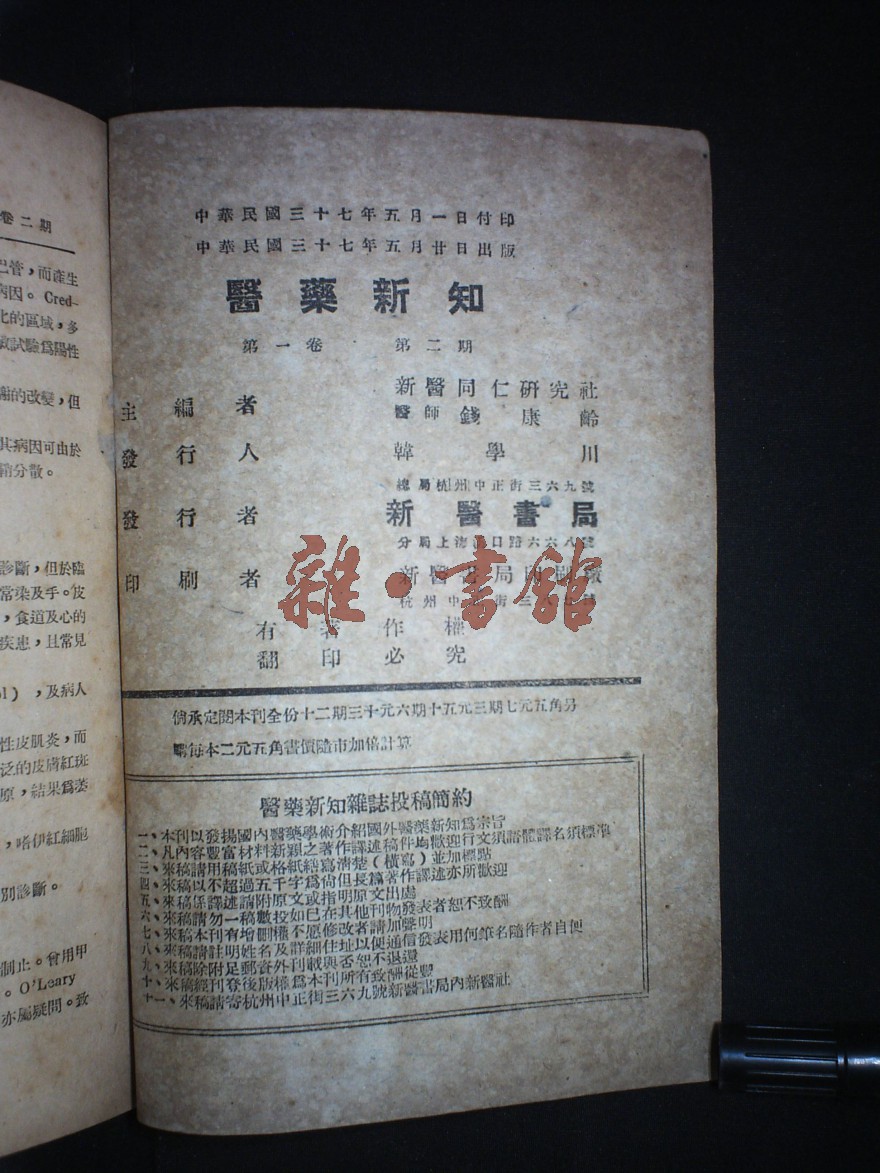 卷二期
已管，而產生
病因。Cred-
化的區域，多
敏試驗爲陽性
謝的改變，但
其病因可由於
稍分散。
診斷，但於臨
常染及手。皮
，食道及心的
疾患，且常見
ol），及病人
性皮肌炎，而
泛的皮膚紅斑
原，結果爲萎
，嗜伊紅細胞
別診斷。
制止。曾用甲
。O'Leary
亦屬疑問。致
中華民國三十七年五月一日付印
中華民國三十七年五月廿日出版
醫藥新知
第一卷 第二期
主編者 新醫同仁研究社
醫師 錢康齡
發行人 韓學川
總局杭州中正街三六九號
發行者 新醫書局
分局上海 口路六六八號
印刷者 新醫書局印刷廠
杭州中正街三六九號
有著作權
翻印必究
雜·書館
倘承定閱本刊全份十二期三十元六期十五元三期七元五角另
購每本二元五角書價隨市加倍計算
醫藥新知雜誌投稿簡約
一、本刊以發揚國內醫藥學術介紹國外醫藥新知爲宗旨
二、凡內容豐富材料新穎之著作譯述稿件均歡迎行文須語體譯名須標準
三、來稿請用稿紙或格紙繕寫清楚（橫寫）並加標點
四、來稿以不超過五千字爲尚但長篇著作譯述亦所歡迎
五、來稿係譯述請附原文或指明原文出處
六、來稿請勿一稿數投如已在其他刊物發表者恕不致酬
七、來稿本刊有增刪權不愿修改者請加聲明
八、來稿請註明姓名及詳細住址以便通信發表用何筆名隨作者自便
九、來稿除附足郵資外刊載與否恕不退還
十、來稿經刊登後版權爲本刊所有致酬從豐
十一、來稿請寄杭州中正街三六九號新醫書局內新醫社